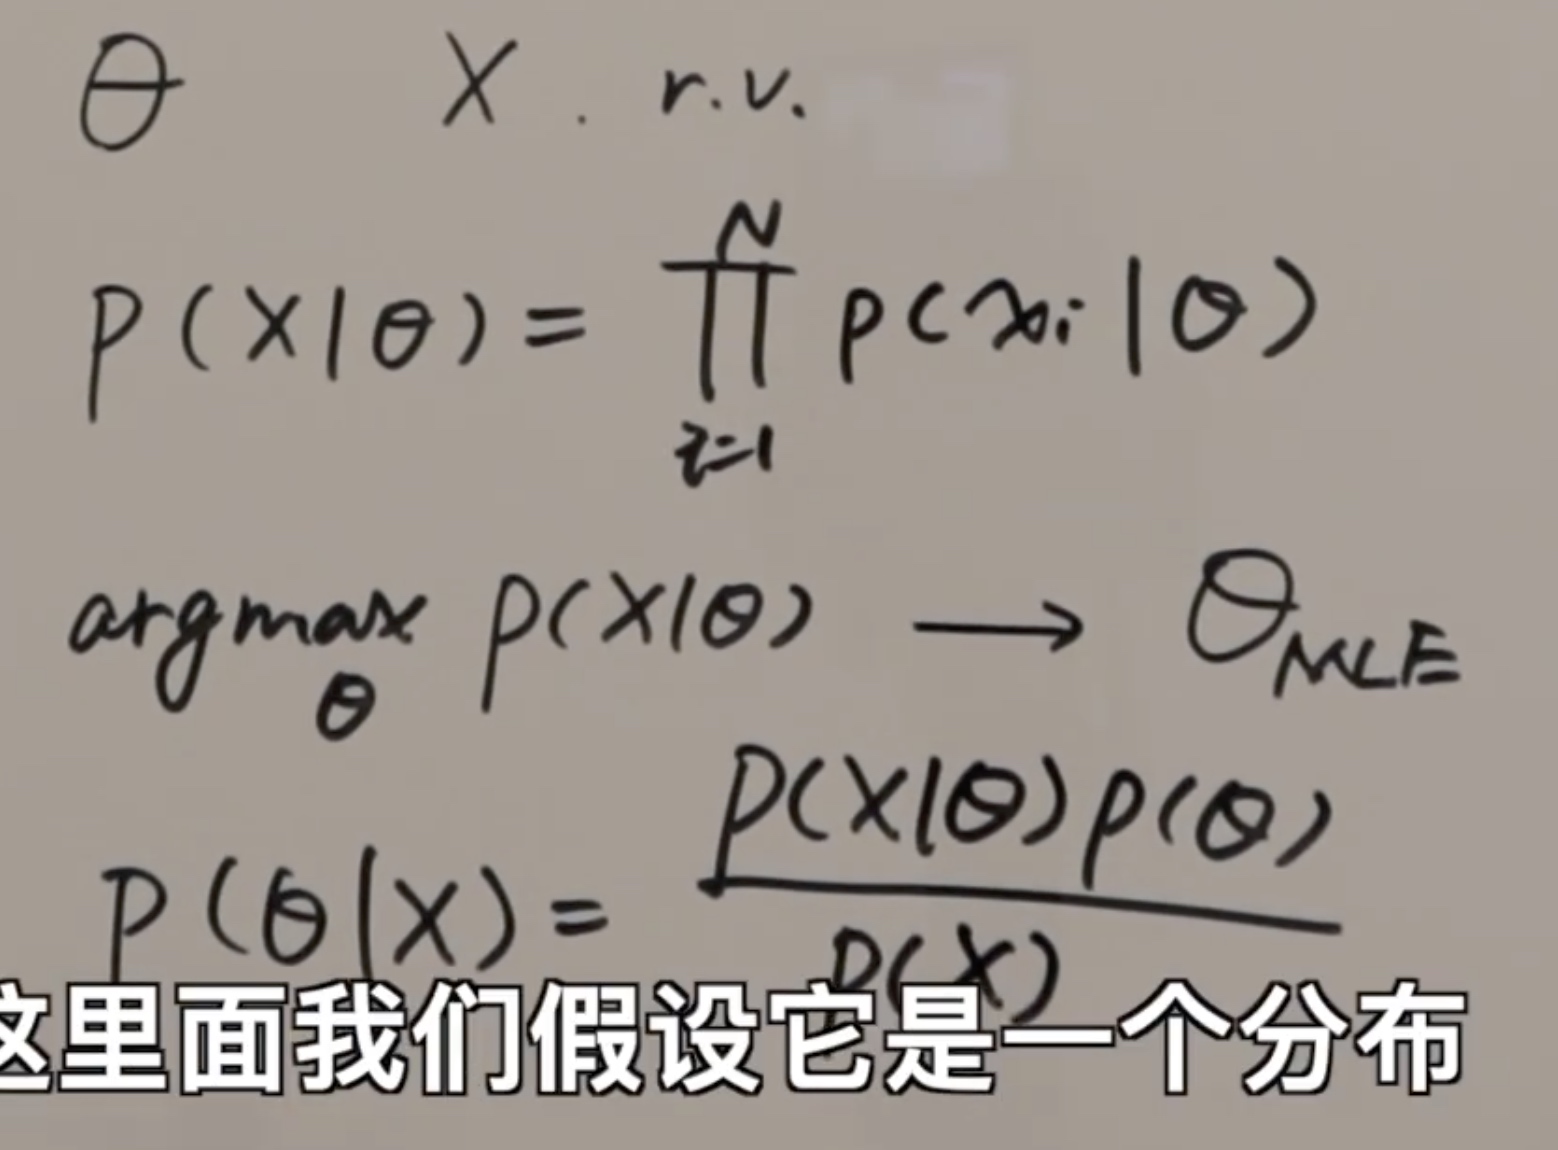 θ X. r.v.
P(X|θ) = ∏_{i=1}^{N} p(xi|θ)
argmax_θ P(X|θ) → θ_MLE
P(θ|X) = P(X|θ)P(θ) / P(X)
这里面我们假设它是一个分布